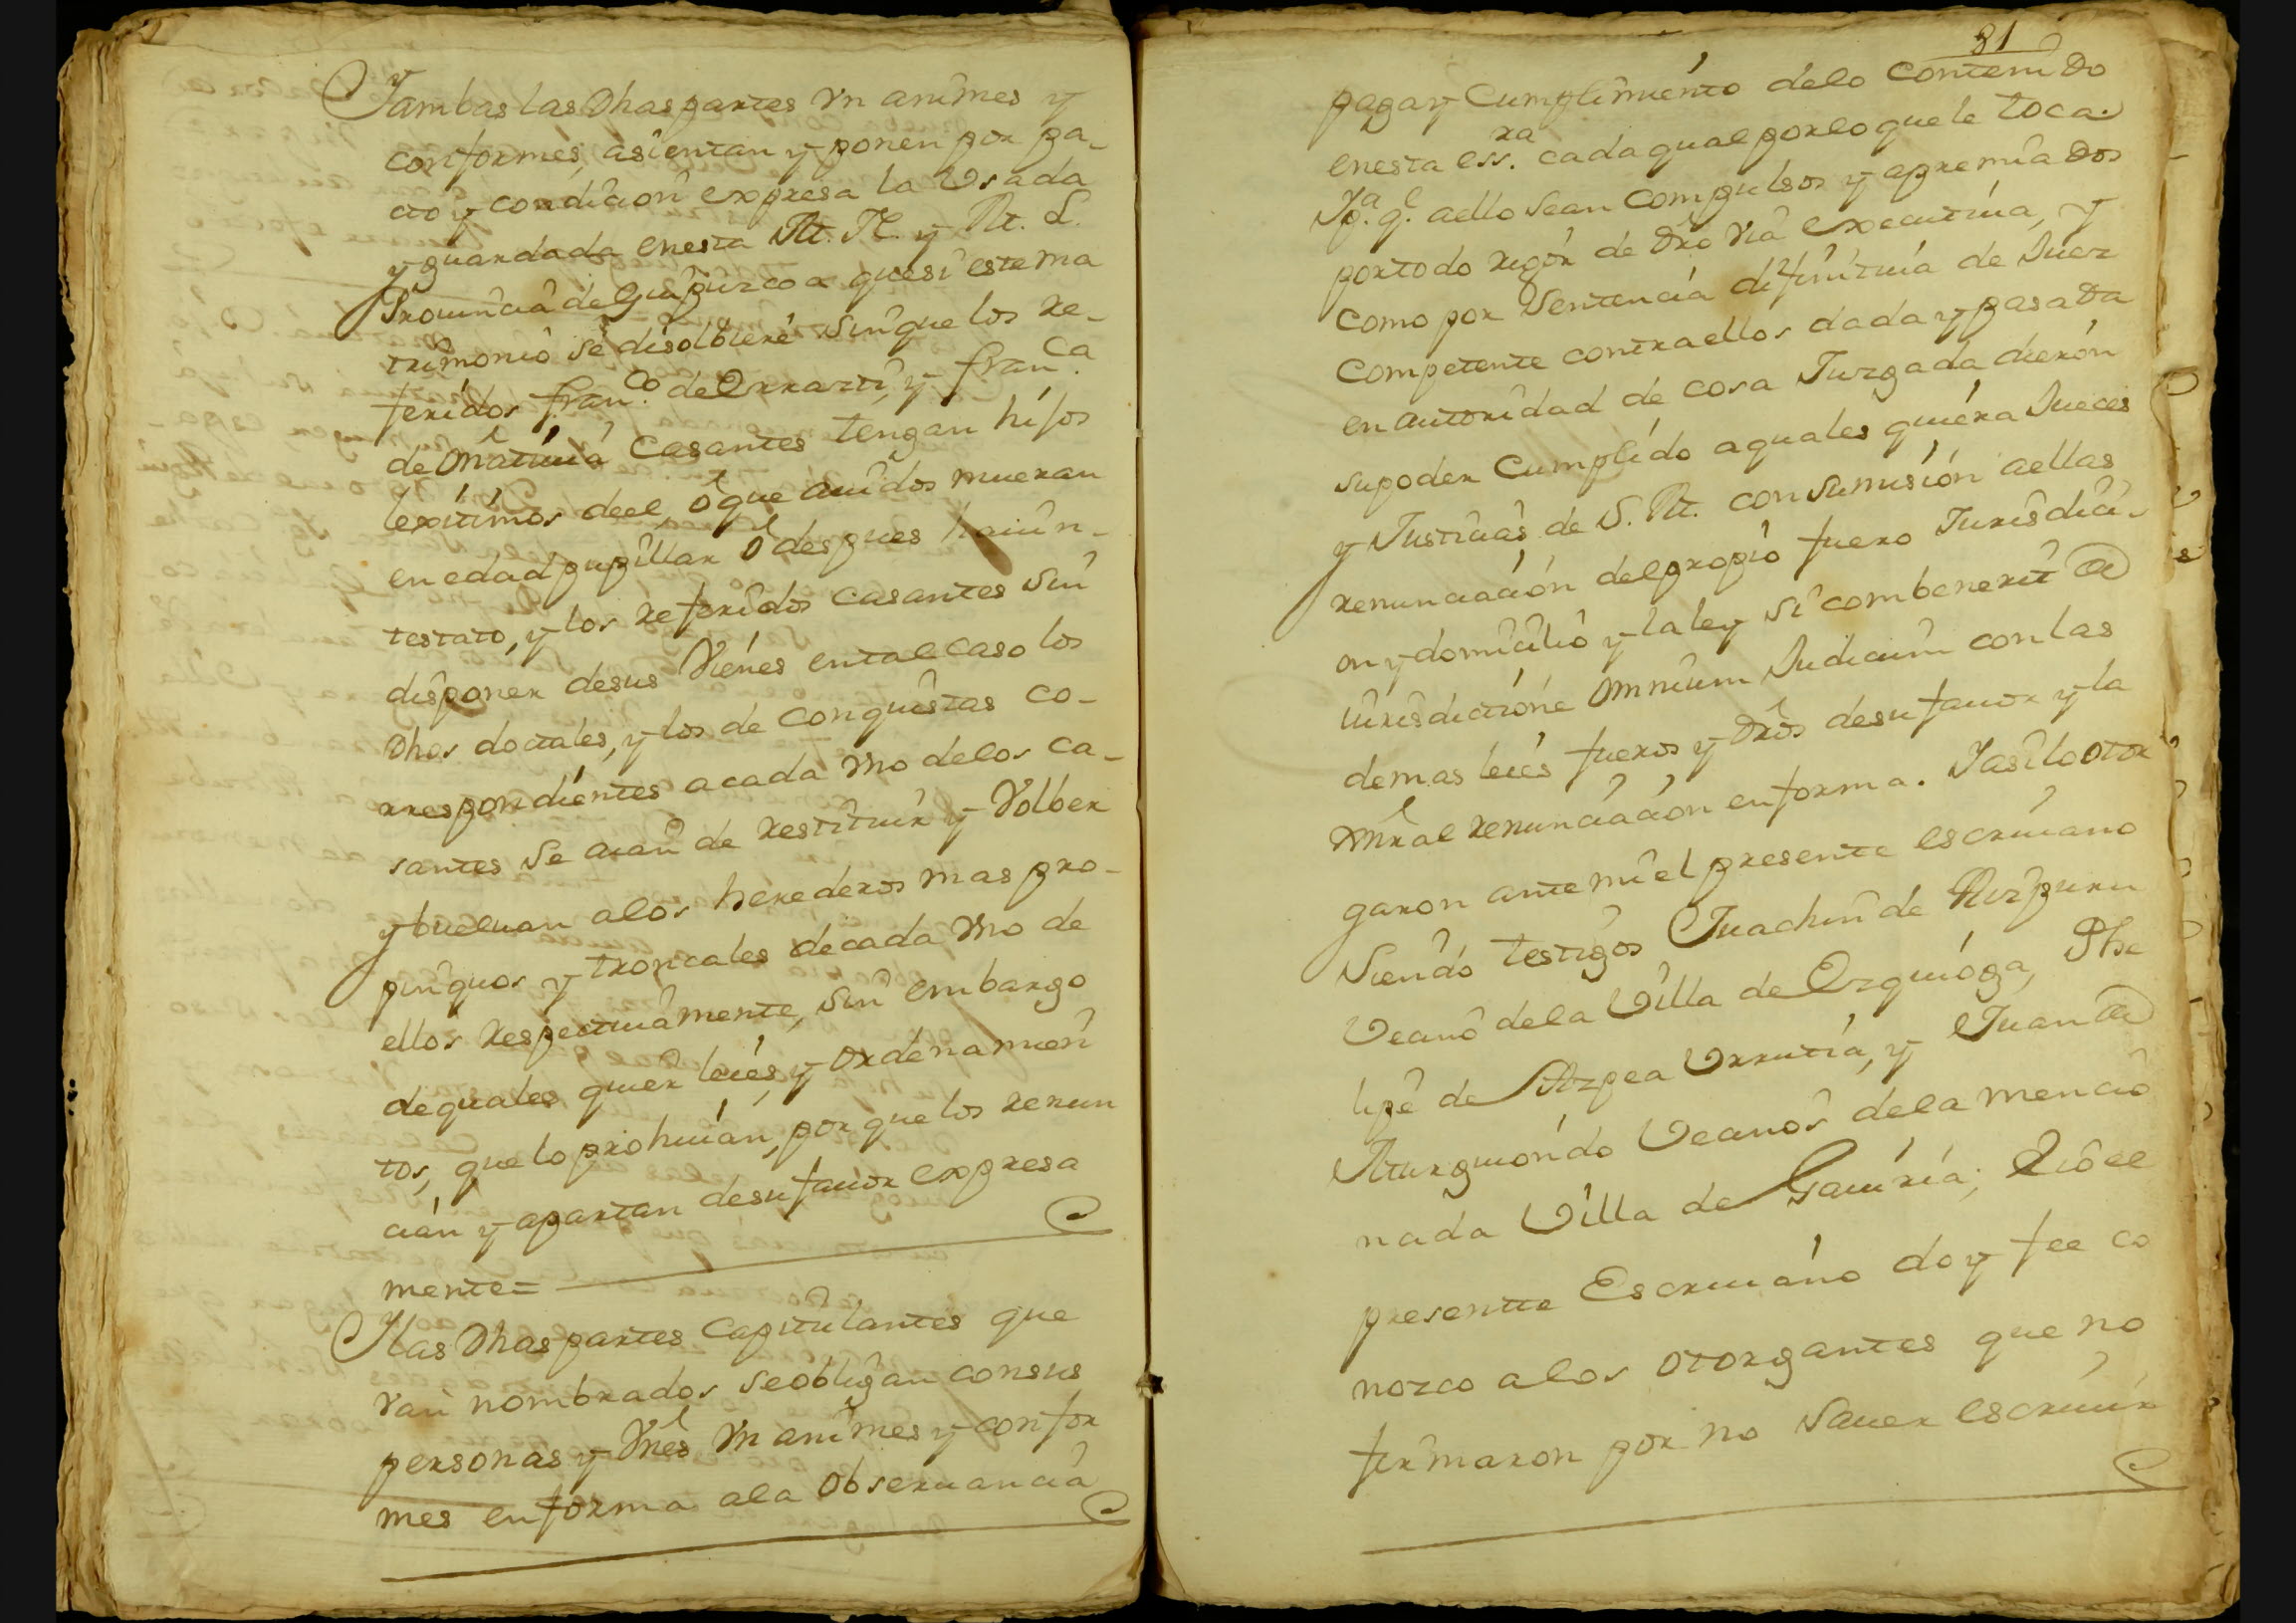 Y ambas las Dhas partes Vn animes y
conformes, asientan y ponen por pa-
cto y condicion expresa la Vsada
y guardada enesta M. N. y M. L.
Prouincia de Guipuzcoa quesi este ma
trimonio se disolbiere sinque los re-
feridos fran.co de Orrarti, y fran.ca
de Casantes tengan hijos
lexitimos deel, ò que auidos mueran
en edad pupillar ò despues hauin-
testato, y los referidos casantes sin
disponer desus Vienes ental caso los
Dhos dotales, y los de conquistas co-
rrespondientes acada Vno delos ca-
santes se aian de restituir y Volber
y bueluan alos herederos mas pro-
pinquos y troncales decada Vno de
ellos respectiuamente, sin embargo
dequales quier leies y ordenamien
tos, que lo prohiuian, por que los renun
cian y apartan desu fauor expresa
mente=
Y las Dhas partes Capitulantes que
Van nombrados seobligan consus
personas y Vnes Vn animes y confor
mes enforma ala obseruancia
81
paga y Cumplimiento delo contenido
enesta ess.ra cadaqual porlo quele toca.
Pa. q. aello sean compulsos y apremiados
portodo rigor de dro via executiua, y
como por Sentencia difinitiua de Juez
Competente contraellos dada y pasada
en autoridad de cosa Juzgada dieron
supoder Cumplido aquales quiera Jueces
y Justicias de S. M. con Sumision aellas
renunciacion delpropio fuero Jurisdici-
on y domicilio y la ley si combenerit de
iurisdictione omnium Judicum con las
demas leies fueros y dros desu fauor y la
Gnral renunciacion enforma. Y asilo otor
garon ante mi el presente escriuano
Siendo testigos Juachin de Aizpuru
Vecino dela Villa de Ezquioga, Phe
lipe de Aizpea Vrrutia, y Juan de
Iturguiondo Vecinos dela mencio
nada Villa de Gauiria; è io el
presente Escriuano doy fee co
nozco alos otorgantes que no
firmaron por no Sauer escriuir